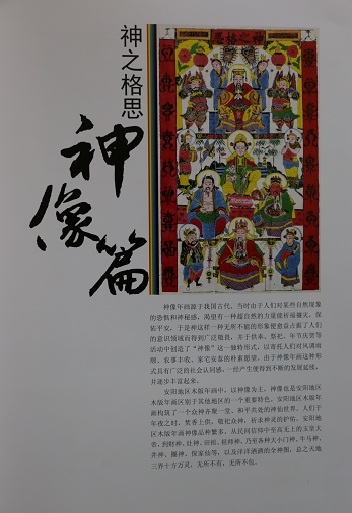 神之格思
神像篇
思格之神
神像年画源于我国古代。当时由于人们对某些自然现象
的恐惧和神秘感，渴望有一种超自然的力量能祈福禳灾、保
佑平安。于是神这样一种无所不能的形象便愈益占据了人们
的意识领域而得到广泛敬畏，并于供来、祭祀、年节庆贺等
活动中创造了“神像”这一独特形式，以寄托人们对风调雨
顺、农事丰收、家宅安泰的朴素愿望。由于神像年画这种形
式具有广泛的社会认同感，一经产生便得到不断的发展延续，
并逐步丰富起来。
安阳地区木版年画中，以神像为主，神像也是安阳地区
木版年画区别于其他地区的一个重要特色。安阳地区木版年
画构筑了一个众神齐聚一堂、和平共处的神仙世界。人们于
年夜之时，焚香上供、敬祀众神，祈求神灵的护佑。安阳地
区木版年画神像品种繁多，从民间信仰中至高无上的玉皇大
帝，到财神、灶神、祖师神，乃至各种大小门神、牛马神、
井神、圈神、保家仙等，以及洋洋洒洒的全神图，总之天地
三界十方万灵，无所不有，无所不包。